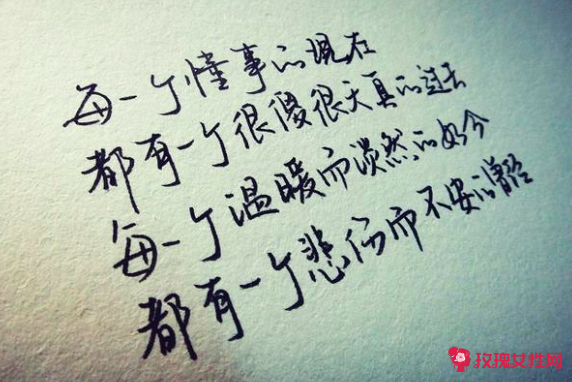 每一个懂事的现在
都有一个很傻很天真的过去
每一个温暖而淡然的如今
都有一个悲伤而不安的曾经
玫瑰女性网